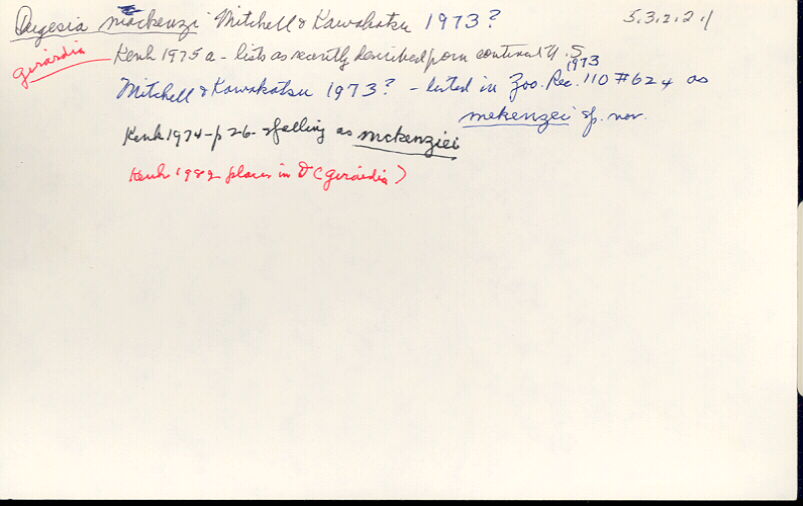 Dugesia mackenzi Mitchell & Kawakatsu 1973? 5.3.2.2.1
girardia Kenk 1975 a - lists as recently described from continental U.S.
Mitchell & Kawakatsu 1973? - listed in Zoo. Rec. 1973 110 #624 as
mckenzei sp. nov.
Kenk 1974 - p 26 - spelling as mckenziei
Kenk 1982 places in D (girardia)